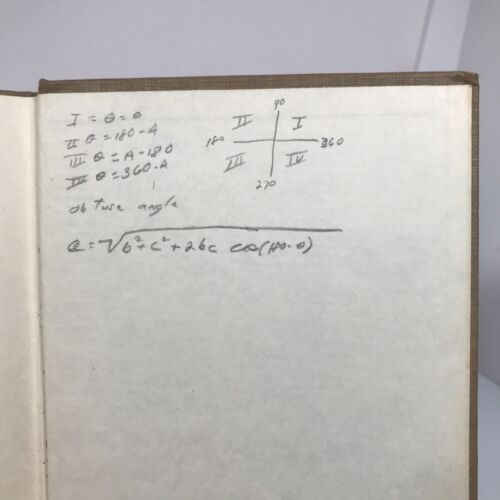 I = θ = θ
II θ = 180 - A
III θ = A - 180
IV θ = 360 - A
90
II I
180 360
III IV
270
obtuse angle
a = √b² + c² + 2bc cos(180 - θ)